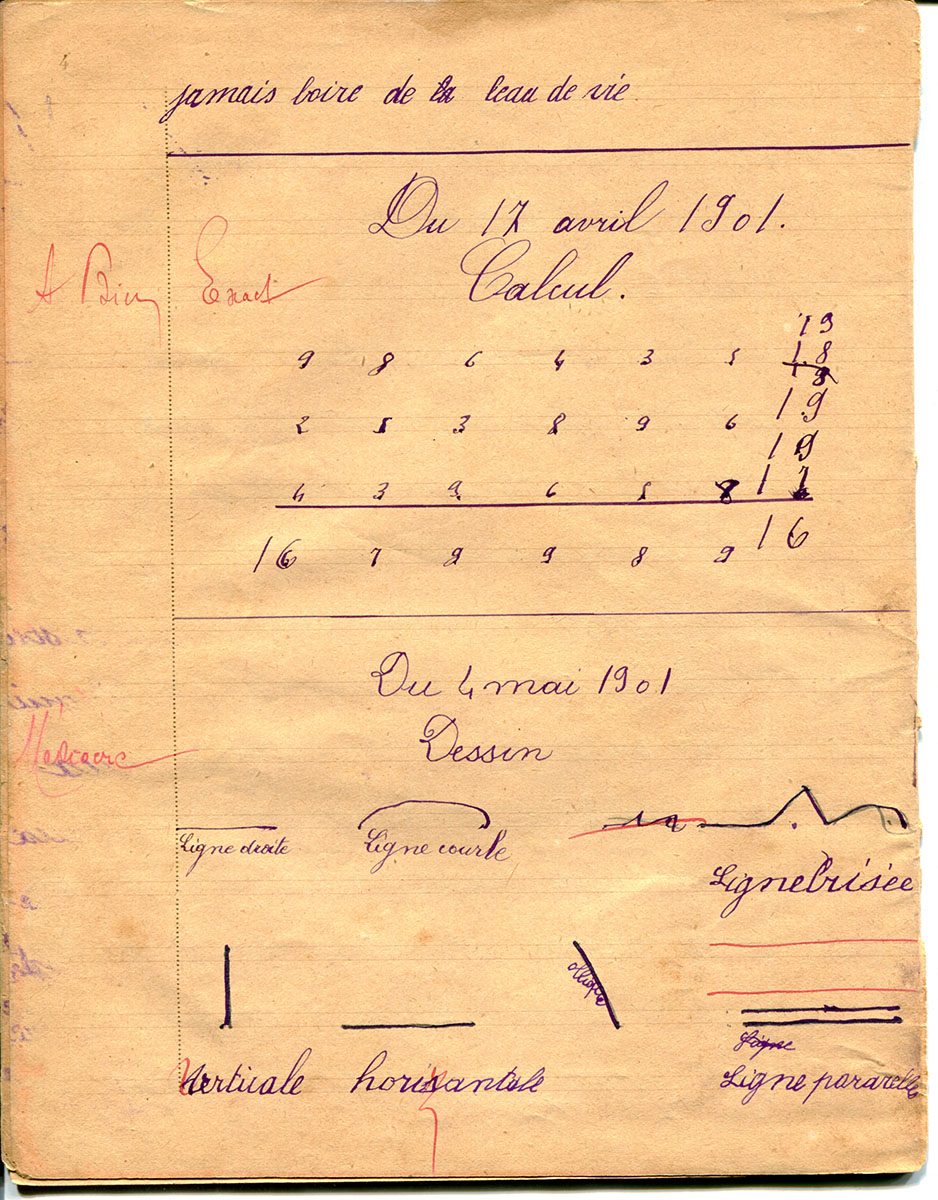 jamais boire de la leau de vie
Du 17 avril 1901.
A Bien Exact
Calcul.
19
9 8 6 4 3 5 18
18
19
2 5 3 8 9 6
19
4 3 9 6 5 8 17
16 7 9 9 8 9 16
Du 4 mai 1901
Dessin
Ligne droite Ligne courbe
Ligne brisée
oblique
Ligne
verticale horizantale Ligne pararelle